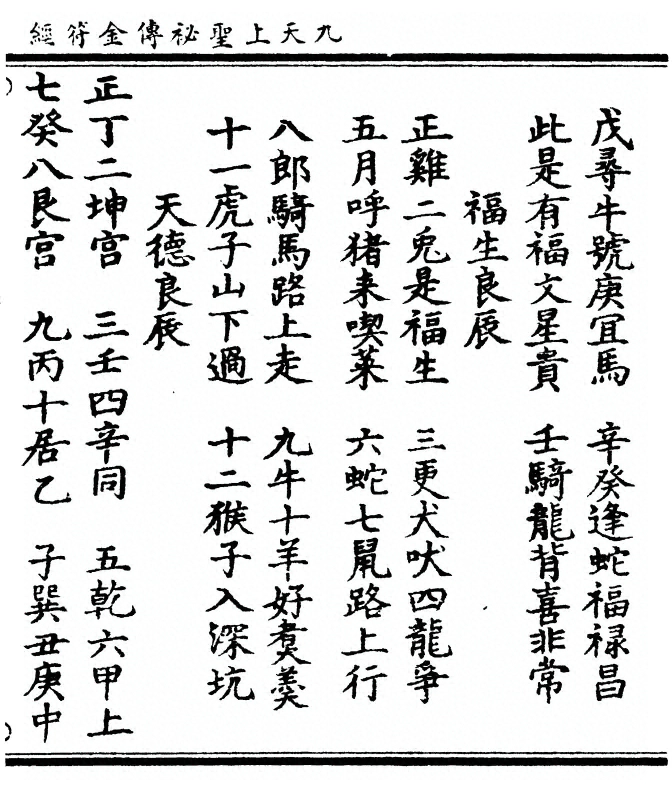 九天上聖祕傳金符經
戊尋牛號庚冝馬 辛癸逢蛇福禄昌
此是有福文星貴 壬騎龍背喜非常
福生良辰
正雞二兎是福生 三更犬吠四龍爭
五月呼猪来喫菜 六蛇七鼠路上行
八郎騎馬路上走 九牛十羊好煑羹
十一虎子山下過 十二猴子入深坑
天德良辰
正丁二坤宫 三壬四辛同 五乾六甲上
七癸八艮宫 九丙十居乙 子巽丑庚中